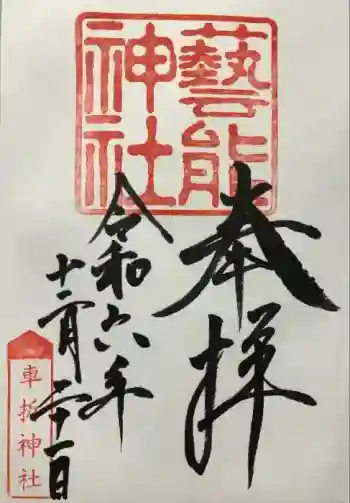 藝能
神社
奉拝
令和六年
十二月二十一日
車折神社